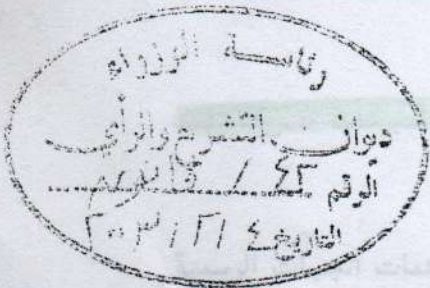 رئاسة الوزراء
ديوان التشريع والرأي
الرقم / ٤٣
التاريخ ٤ / ٢ / ٢٠٠٣